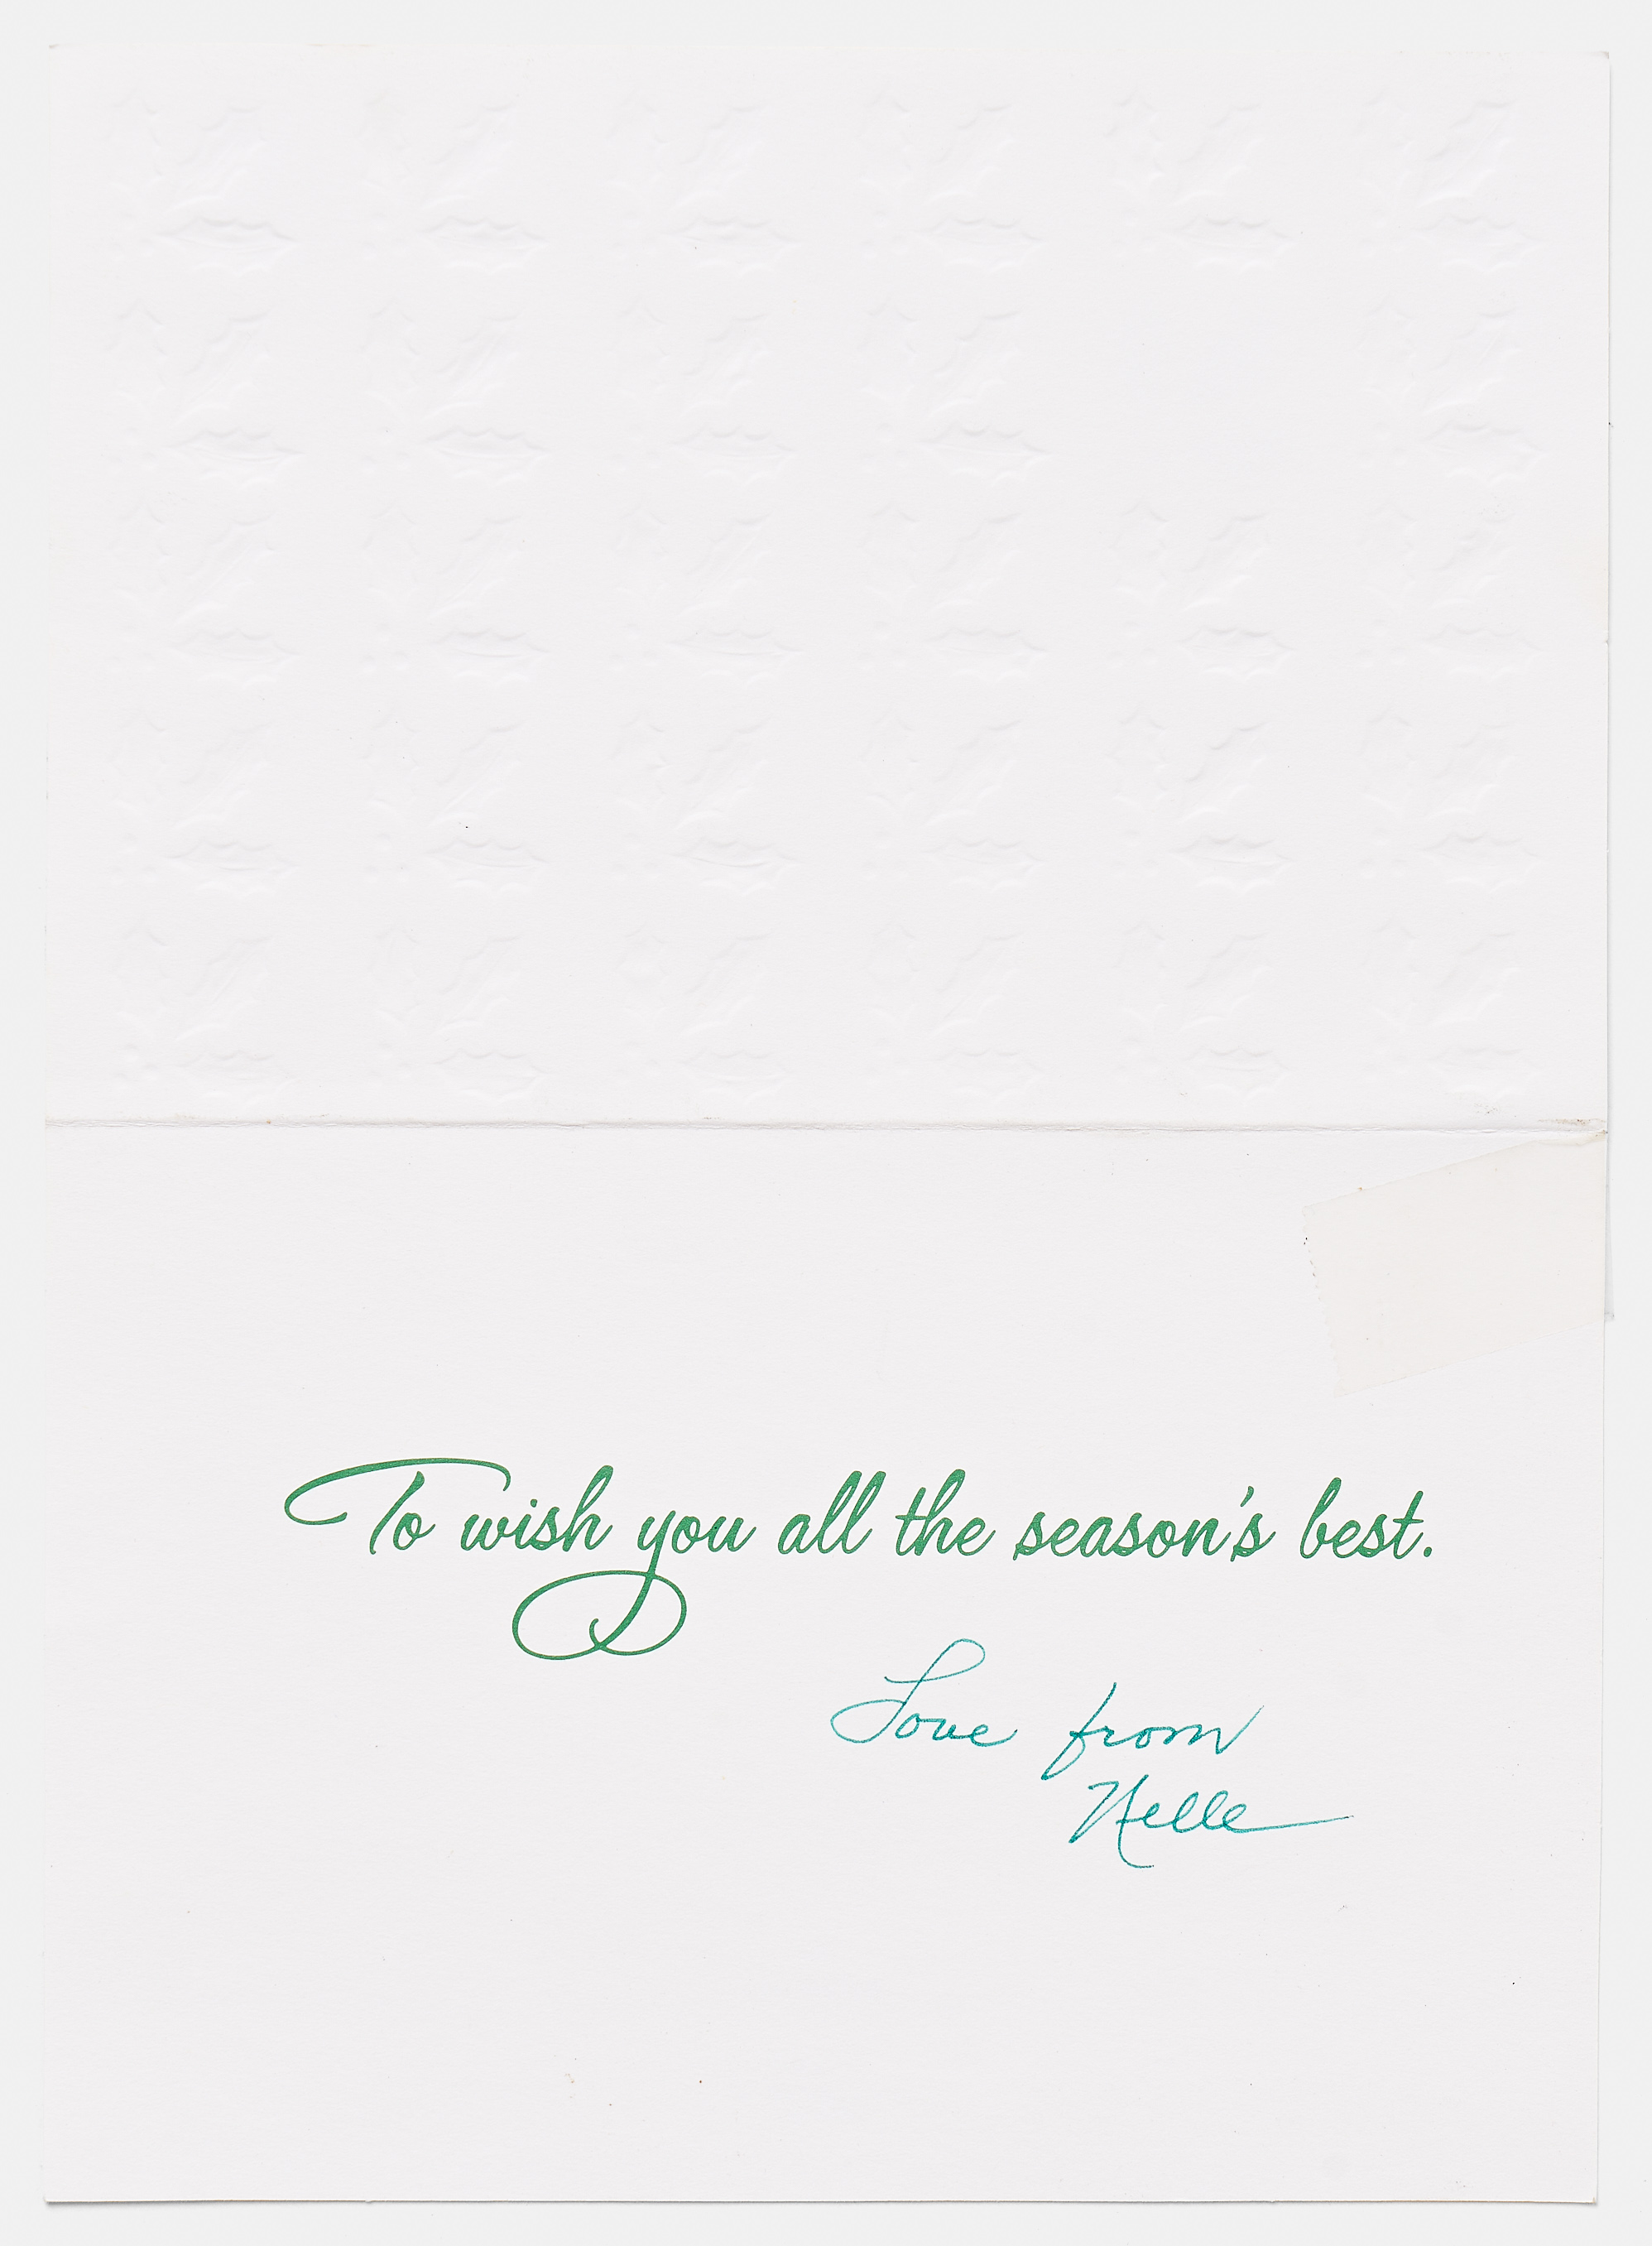 To wish you all the season's best.
Love from
Nelle